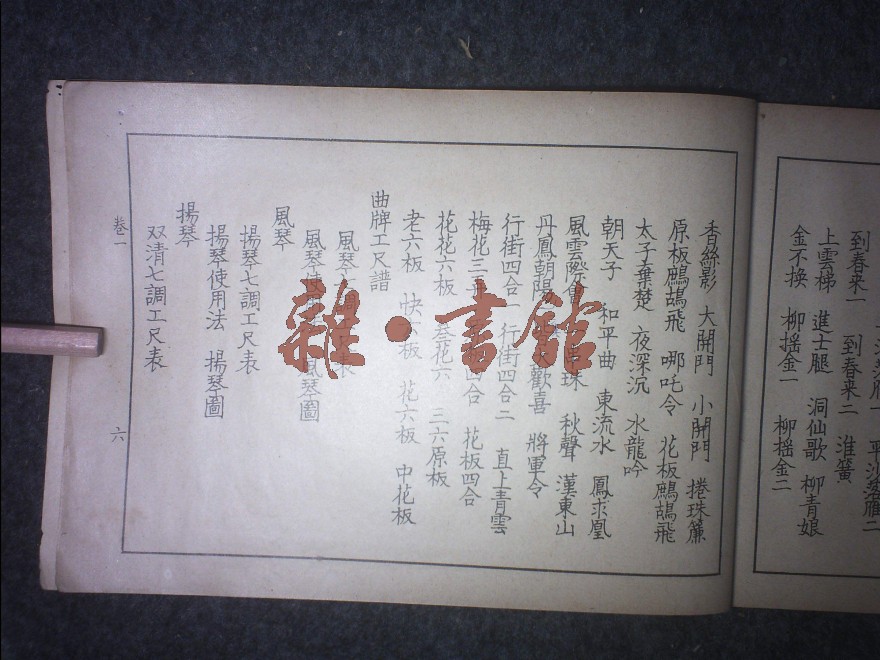 到春来一 到春来二 淮簧
上雲梯 進士腿 洞仙歌 柳青娘
金不换 柳摇金一 柳摇金二
香絲影 大開門 小開門 捲珠簾
原板鷓鴣飛 哪吒令 花板鷓鴣飛
太子棄楚 夜深沉 水龍吟
朝天子 和平曲 東流水 鳳求凰
風雲際會 珠 秋聲 漢東山
丹鳳朝陽 歡喜 將軍令
行街四合一 行街四合二 直上青雲
梅花三 四合 花板四合
花花六板 花六 三六原板
老六板 快 板 花六板 中花板
曲牌工尺譜
風琴 表
風琴使 風琴圖
風琴
揚琴七調工尺表
揚琴使用法 揚琴圖
揚琴
双清七調工尺表
卷一
六
雜·書館